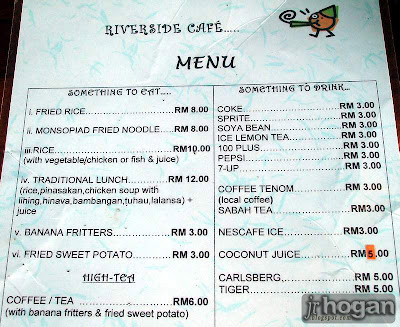 RIVERSIDE CAFÉ.....
MENU
SOMETHING TO EAT....
i. FRIED RICE.................RM 8.00
ii. MONSOPIAD FRIED NOODLE.....RM 8.00
iii.RICE.......................RM10.00
(with vegetable/chicken or fish & juice)
iv. TRADITIONAL LUNCH....RM 12.00
(rice,pinasakan,chicken soup with
lihing,hinava,bambangan,tuhau,lalansa) +
juice
v. BANANA FRITTERS..........RM 3.00
vi. FRIED SWEET POTATO.......RM 3.00
HIGH-TEA
COFFEE / TEA ...............RM6.00
(with banana fritters & fried sweet potato)
SOMETHING TO DRINK...
COKE..........................RM 3.00
SPRITE........................RM 3.00
SOYA BEAN..................RM 3.00
ICE LEMON TEA...........RM 3.00
100 PLUS.....................RM 3.00
PEPSI..........................RM 3.00
7-UP............................RM 3.00
COFFEE TENOM............RM 3.00
(local coffee)
SABAH TEA...................RM3.00
NESCAFE ICE...............RM3.00
COCONUT JUICE RM5.00
CARLSBERG,..............RM 5.00
TIGER.........................RM 5.00
jrhogan
blogspot.com